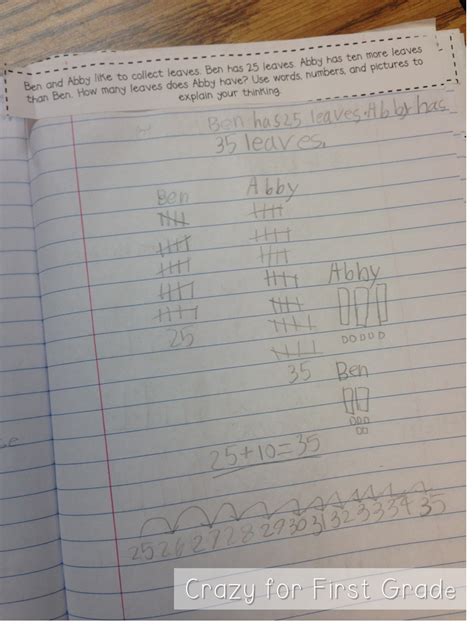 Ben and Abby like to collect leaves. Ben has 25 leaves. Abby has ten more leaves
than Ben. How many leaves does Abby have? Use words, numbers, and pictures to
explain your thinking.
Ben has 25 leaves. Abby has
35 leaves.
Ben
Abby
25
35
Abby
Ben
25+10=35
25 26 27 28 29 30 31 32 33 34 35
Crazy for First Grade